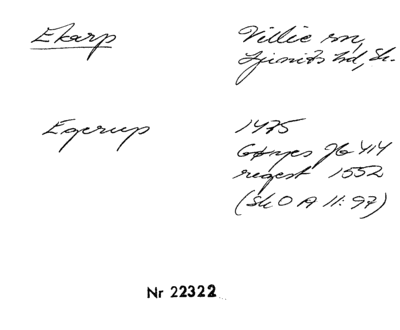 Ekarp
Villie sn,
Ljunits hd, Sk.
Egerup
1475
Gonges Jb 414
regest 1552
(Sk O A 11: 97)
Nr 22322